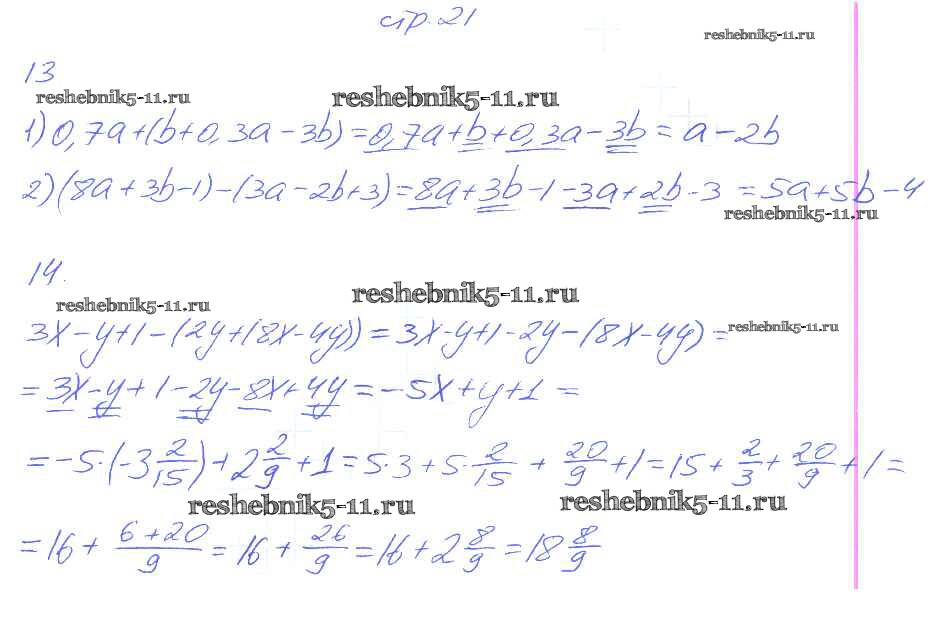 стр. 21
reshebnik5-11.ru
13
reshebnik5-11.ru
reshebnik5-11.ru
1) 0,7a+(b+0,3a-3b)=0,7a+b+0,3a-3b=a-2b
2) (8a+3b-1)-(3a-2b+3)=8a+3b-1-3a+2b-3=5a+5b-4
reshebnik5-11.ru
14.
reshebnik5-11.ru
reshebnik5-11.ru
3x-y+1-(2y+(8x-4y))=3x-y+1-2y-(8x-4y)=
reshebnik5-11.ru
=3x-y+1-2y-8x+4y=-5x+y+1=
=-5·(-3 2/15)+2 2/9+1=5·3+5·2/15+20/9+1=15+2/3+20/9+1=
reshebnik5-11.ru
reshebnik5-11.ru
=16+(6+20)/9=16+26/9=16+2 8/9=18 8/9